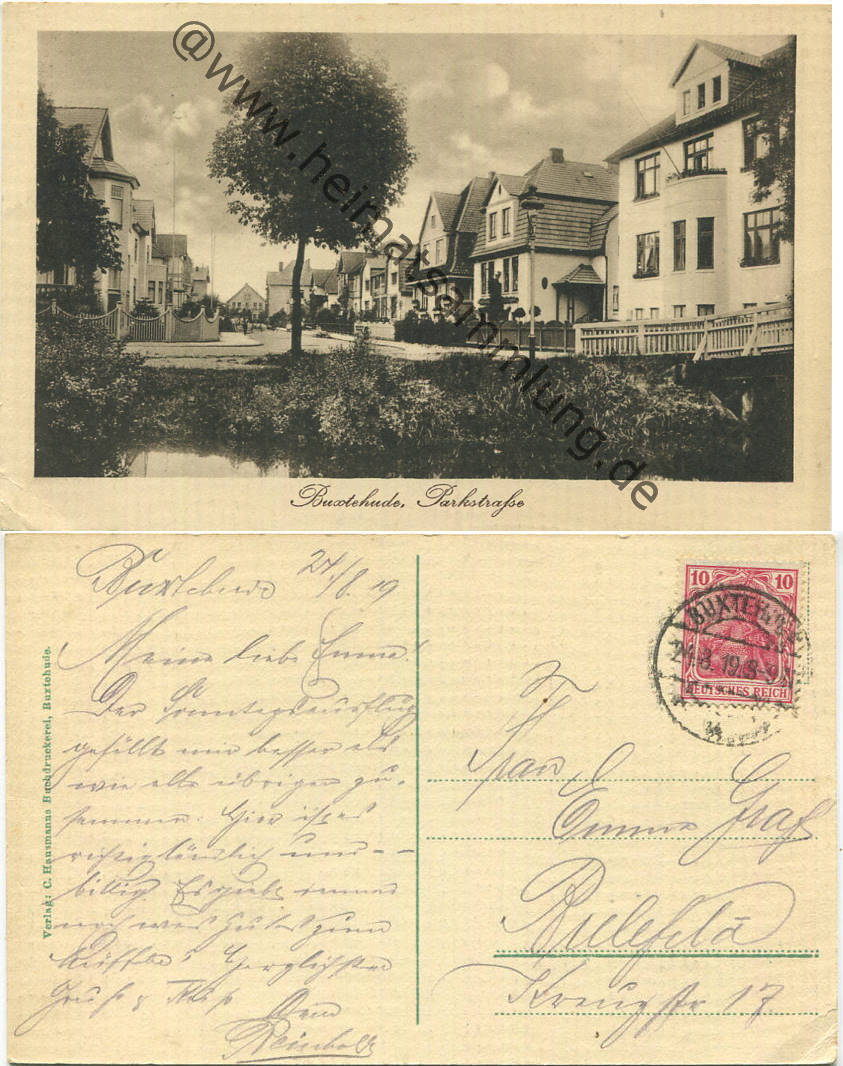 @www.heimatsammlung.de
Buxtehude, Parkstraße
Verlag: C. Hausmanns Buchdruckerei, Buxtehude.
Buxtehude 24/8.19
Meine liebe Emma!
Der Sonntagsausflug
gefällt mir besser als
wie alle übrigen zu-
sammen. Hier ist es
richtig ländlich und -
billig. Es giebt immer
noch was Gutes zum
Herzlichsten
Gruß & Kuß
Dein
Reinhold
10 10
DEUTSCHES REICH
BUXTEHUDE
24.8.19.8-9
Frau
Emma Graf
Bielefeld
Kreuzstr 17